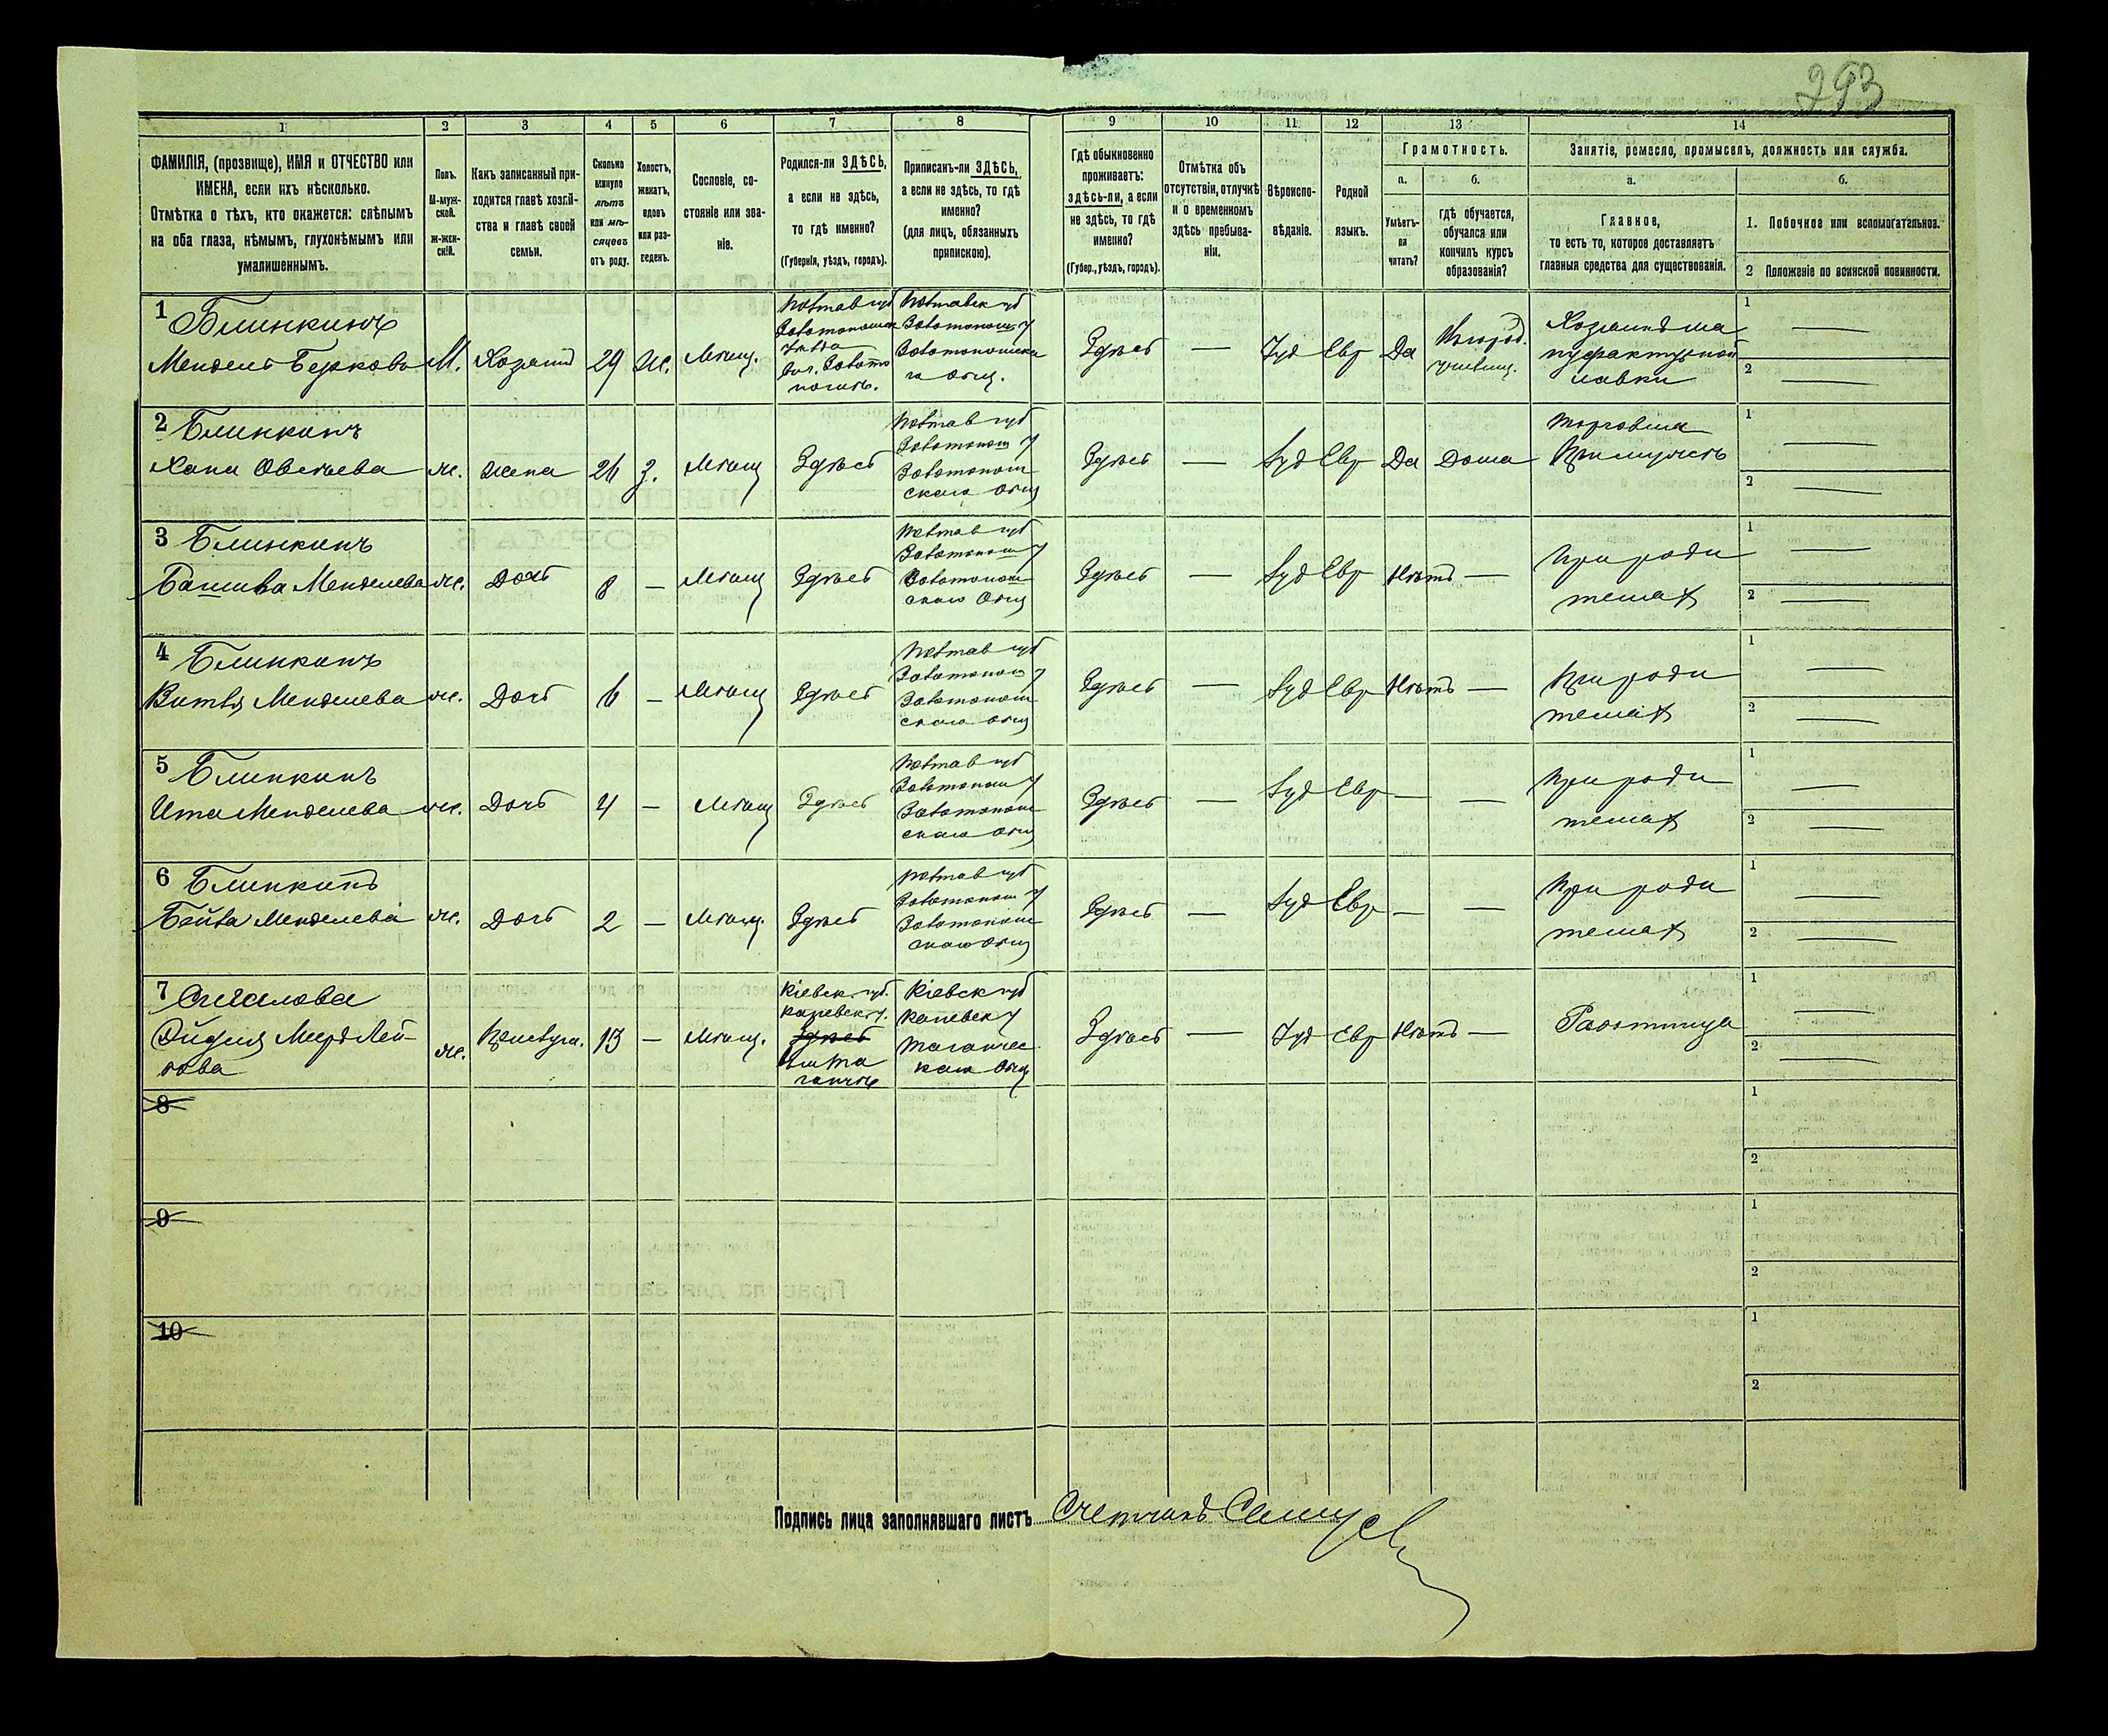 293
1
2
3
4
5
6
7
8
9
10
11
12
13
14
ФАМИЛІЯ, (прозвище), ИМЯ и ОТЧЕСТВО или
ИМЕНА, если ихъ нѣсколько.
Отмѣтка о тѣхъ, кто окажется: слѣпымъ
на оба глаза, нѣмымъ, глухонѣмымъ или
умалишеннымъ.
Полъ.
М-муж-
ской.
Ж-жен-
скій.
Какъ записанный при-
ходится главѣ хозяй-
ства и главѣ своей
семьи.
Сколько
минуло
лѣтъ
или мѣ-
сяцевъ
отъ роду.
Холостъ,
женатъ,
вдовъ
или раз-
веденъ.
Сословіе, со-
стояніе или зва-
ніе.
Родился-ли ЗДѢСЬ,
а если не здѣсь,
то гдѣ именно?
(Губернія, уѣздъ, городъ).
Приписанъ-ли ЗДѢСЬ,
а если не здѣсь, то гдѣ
именно?
(для лицъ, обязанныхъ
припискою).
Гдѣ обыкновенно
проживаетъ:
здѣсь-ли, а если
не здѣсь, то гдѣ
именно?
(Губер., уѣздъ, городъ).
Отмѣтка объ
отсутствіи, отлучкѣ
и о временномъ
здѣсь пребыва-
ніи.
Вѣроиспо-
вѣданіе.
Родной
языкъ.
Грамотность.
а.
Умѣетъ-
ли
читать?
б.
гдѣ обучается,
обучался или
кончилъ курсъ
образованія?
Занятіе, ремесло, промыселъ, должность или служба.
а.
Главное,
то есть то, которое доставляетъ
главныя средства для существованія.
б.
1. Побочное или вспомогательное.
2 Положеніе по воинской повинности.
1 Блинкинъ
Мендель Берковъ М. Хозяинъ 29 Ж. Мѣщ.
Полтав губ
Золотоношск
уѣзда
Золото
ноша.
Полтавск губ
Золотонош у
Золотоношска
го общ.
Здѣсь — Іуд Евр Да
Хозяинъ
мануфактурной
лавки
1 —
2 —
2 Блинкинъ
Хана Овсѣева ж. жена 26 З. Мѣщ Здѣсь
Полтав губ
Золотонош у
Золотонош
скаго общ
Здѣсь — Іуд Евр Да Дома
Торговля
При мужѣ
1 —
2 —
3 Блинкинъ
Башива Менделева ж. Дочь 8 — Мѣщ Здѣсь
Полтав губ
Золотонош у
Золотонош
скаго Общ
Здѣсь — Іуд Евр Нѣтъ —
При роди
теляхъ
1 —
2 —
4 Блинкинъ
Менделева ж. Дочь 6 — Мѣщ Здѣсь
Полтав губ
Золотонош у
Золотонош
скаго общ
Здѣсь — Іуд Евр Нѣтъ —
При роди
теляхъ
1 —
2 —
5 Блинкинъ
Ита Менделева ж. Дочь 4 — Мѣщ Здѣсь
Полтав губ
Золотонош у
Золотонош
скаго общ
Здѣсь — Іуд Евр — —
При роди
теляхъ
1 —
2 —
6 Блинкинъ
Бейла Менделева ж. Дочь 2 — Мѣщ. Здѣсь
Полтав губ
Золотонош у
Золотонош
скаго общ
Здѣсь — Іуд Евр — —
При роди
теляхъ
1 —
2 —
7 Сигалова
Лей-
бова ж. Прислуга. 13 — Мѣщ.
Кіевск. губ.
Каневск у.
Здѣсь
Кіевск губ
Каневск у
Таганчес
каго общ
Здѣсь — Іуд Евр Нѣтъ —
Работница
1 —
2 —
8
1
2
9
1
2
10
1
2
Подпись лица заполнявшаго листъ Счетчикъ